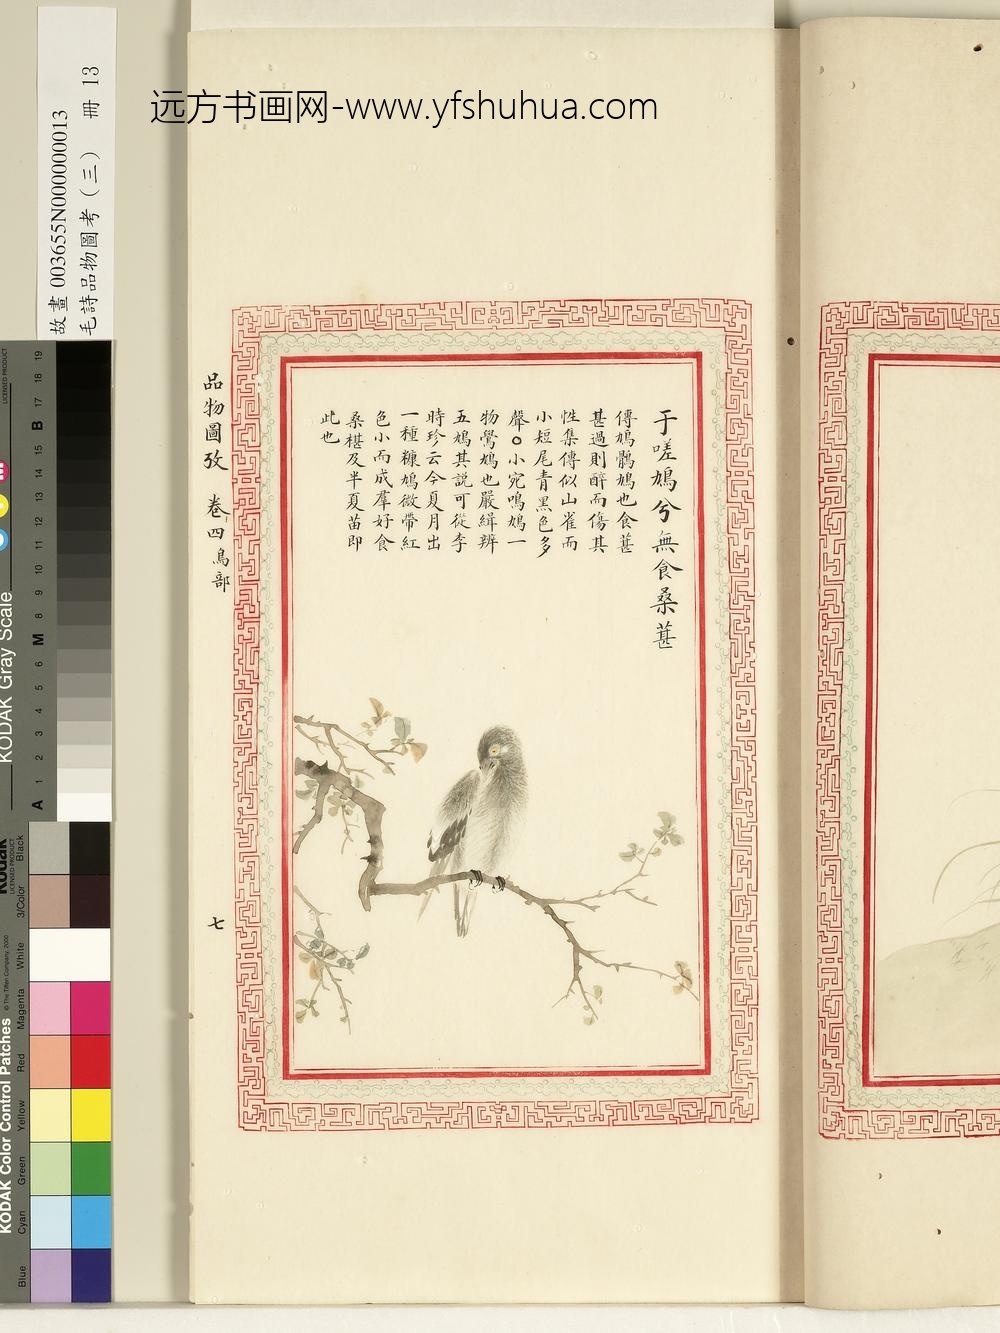 远方书画网-www.yfshuhua.com
故畫 003655N000000013
毛詩品物圖考（三） 冊 13
于嗟鳩兮無食桑葚
傳鳩鶻鳩也食葚
甚過則醉而傷其
性集傳似山雀而
小短尾青黑色多
聲○小宛鳴鳩一
物鷽鳩也嚴緝辨
五鳩其說可從李
時珍云今夏月出
一種糠鳩微帶紅
色小而成羣好食
桑椹及半夏苗即
此也
品物圖攷 卷四鳥部
七
KODAK Gray Scale
LICENSED PRODUCT
A 1 2 3 4 5 6 M 8 9 10 11 12 13 14 15 B 17 18 19
KODAK Color Control Patches
© The Tiffen Company, 2000
Kodak
LICENSED PRODUCT
Blue Cyan Green Yellow Red Magenta White 3/Color Black